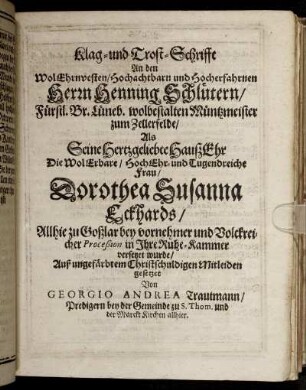 Klag-und Trost-Schrifft
An den
WolEhrnvesten/Hochachtbarn und Hocherfahrnen
Herrn Henning Schlütern/
Fürstl. Br. Lüneb. wolbestalten Müntzmeister
zum Zellerfelde/
Als
Seine Hertzgeliebte HaußEhr
Die WolErbare/ HochEhr und Tugendreiche
Frau/
Dorothea Susanna
Eckhards/
Allhie zu Goßlar bey vornehmer und Volckrei-
cher Procession in Ihre Ruhe-Kammer
versetzet wurde/
Auß ungefärbtem Christschuldigen Mitleiden
gesetzet
Von
GEORGIO ANDREA Trautmann/
Predigern bey der Gemeinde zu S. Thom. und
der Marckt Kirchen allhier.